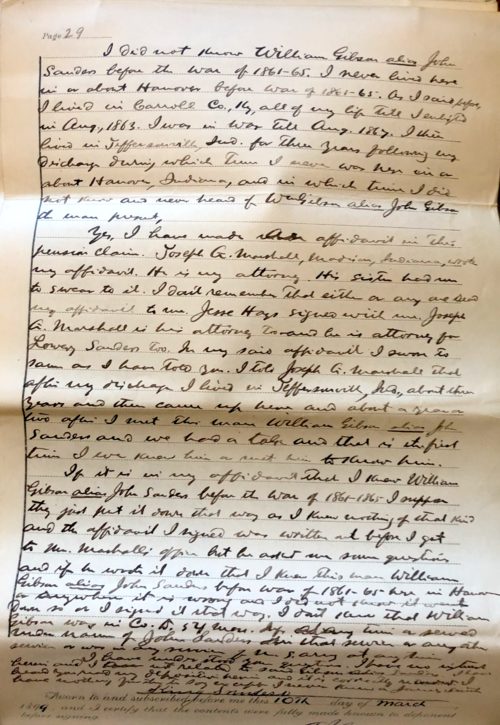 Page 29
I did not know William Gibson alias John
Sanders before the War of 1861-65. I never lived here
in or about Hanover before War of 1861-65. As I said before,
I lived in Carroll Co., Ky, all of my life till I enlisted
in Aug., 1863. I was in war till Aug. 1867. I then
lived in Jeffersonville, Ind. for three years following my
discharge during which time I never was here in or
about Hanover, Indiana, and in which time I did
not know and never heard of Wm Gibson alias John Gibson
Yes, I have made affidavit in this
pension claim. Joseph G. Marshall, Madison, Indiana, wrote
my affidavit. He is my attorney. His sister had me
to swear to it. I don't remember that either or any one read
my affidavit to me. Jesse Hays signed with me. Joseph
G. Marshall is his attorney too and he is attorney for
Lowery Sanders too. In my said affidavit I swore to
same as I have told you. I told Joseph G. Marshall that
after my discharge I lived in Jeffersonville, Ind., about three
years and then came up here and about a year or
two after I met this man William Gibson alias John
Sanders and we had a talk and that is the first
time I ever knew him or met him to know him.
If it is in my affidavit that I knew William
Gibson alias John Sanders before the War of 1861-1865 I suppose
they just put it down that way as I knew nothing of that kind
and the affidavit I signed was written out before I got
to Mr. Marshall's office but he asked me some questions
and if he wrote it down that I knew this man William
Gibson alias John Sanders before War of 1861-65 here in Hanover
or anywhere it is wrong and I did not know it went
down so or I signed it that way. I don't know that William
Gibson was in Co. D, 54 Mass. or served
under name of John Sanders in that service or any other
Sworn to and subscribed before me this 10th day of March,
1899, and I certify that the contents were fully made known to deponent
before signing.